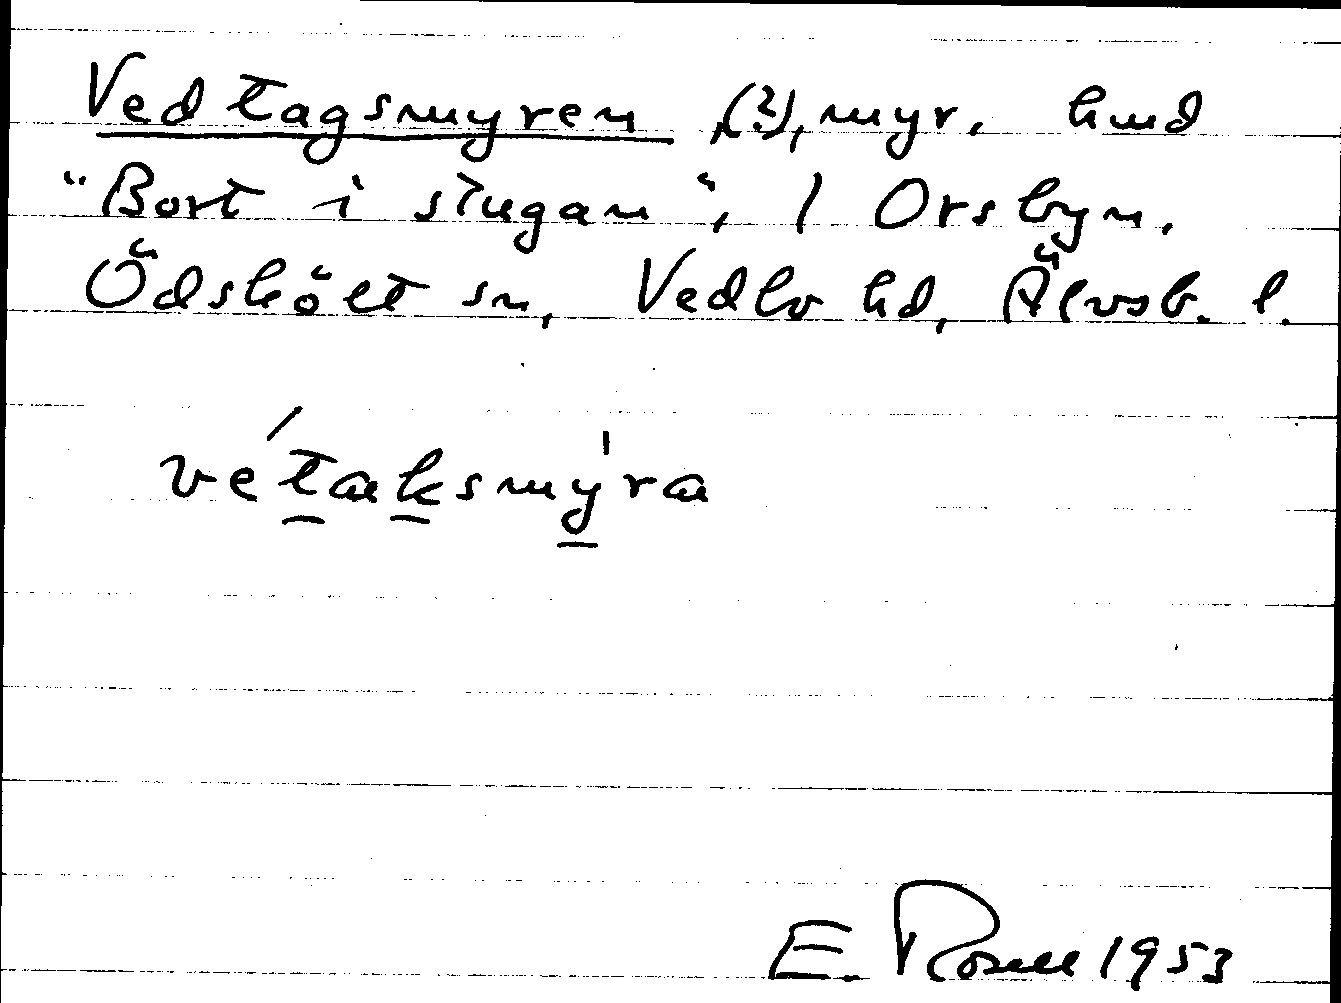 Vedtagsmyren (?), myr, hmd
"Bort i stugan", i Orsbyn,
Ödskölt sn, Vedbo hd, Älvsb. l.
vétaksmýra
E. Rosell 1953